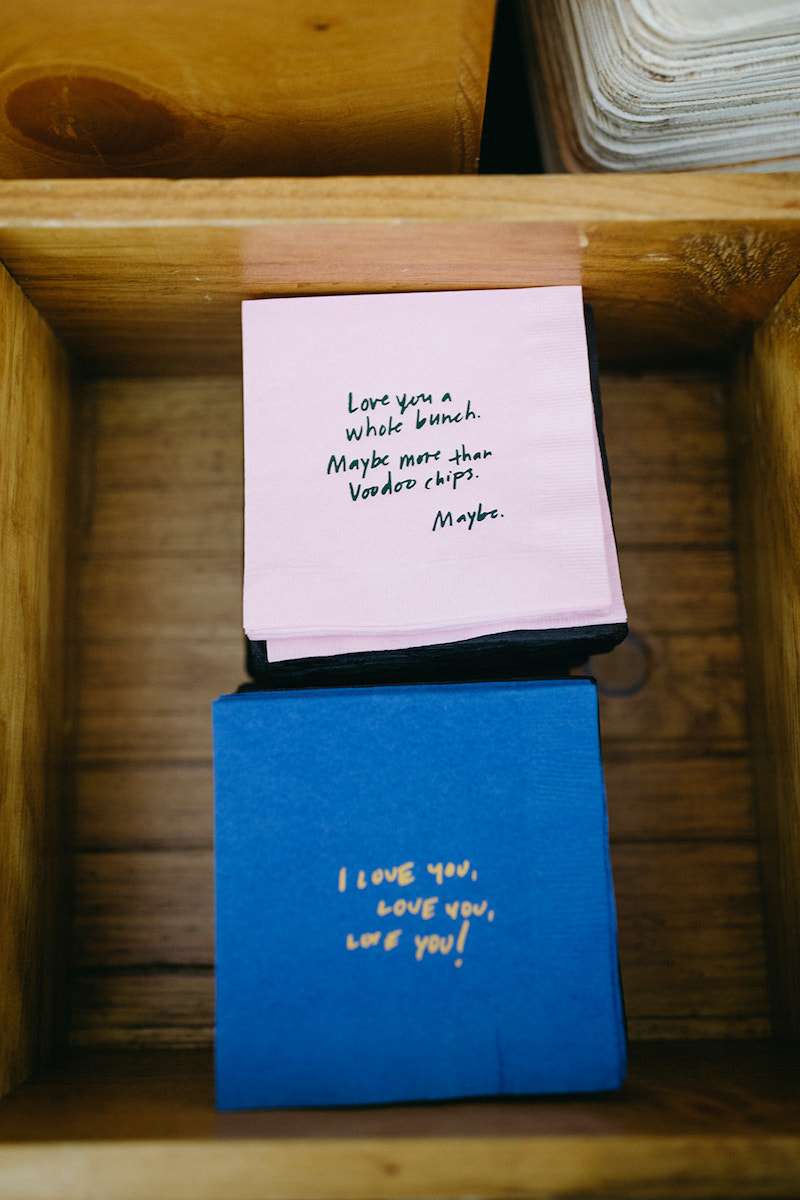 Love you a
whole bunch.
Maybe more than
Voodoo chips.
Maybe.
I LOVE YOU,
LOVE YOU,
LOVE YOU!